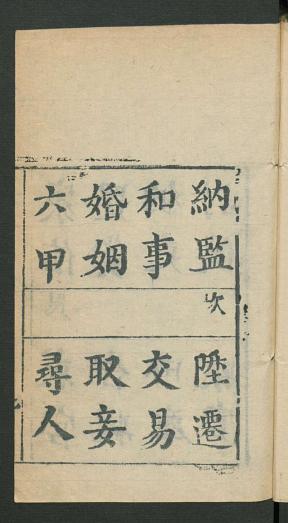 納監
和事
婚姻
六甲
次
陞遷
交易
取妾
尋人